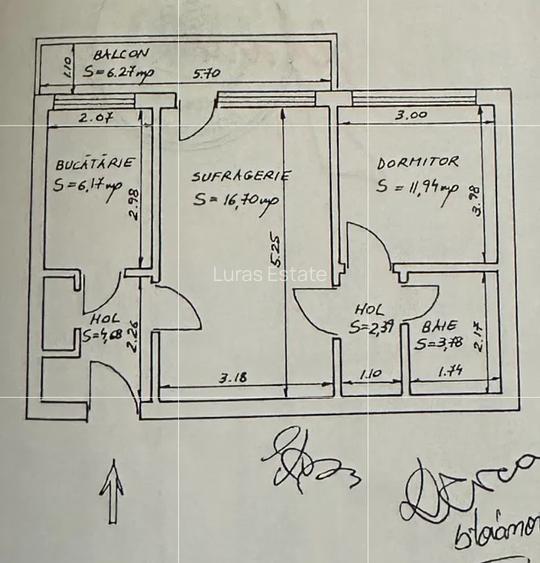 BALCON
S=6.27mp
1.10
5.70
2.07
3.00
BUCĂTĂRIE
S=6,17mp
2.98
SUFRAGERIE
S=16,70mp
5.25
DORMITOR
S=11,94mp
3.98
Luras Estate
HOL
S=4,68
2.26
HOL
S=2,39
BAIE
S=3,78
2.17
3.18
1.10
1.74